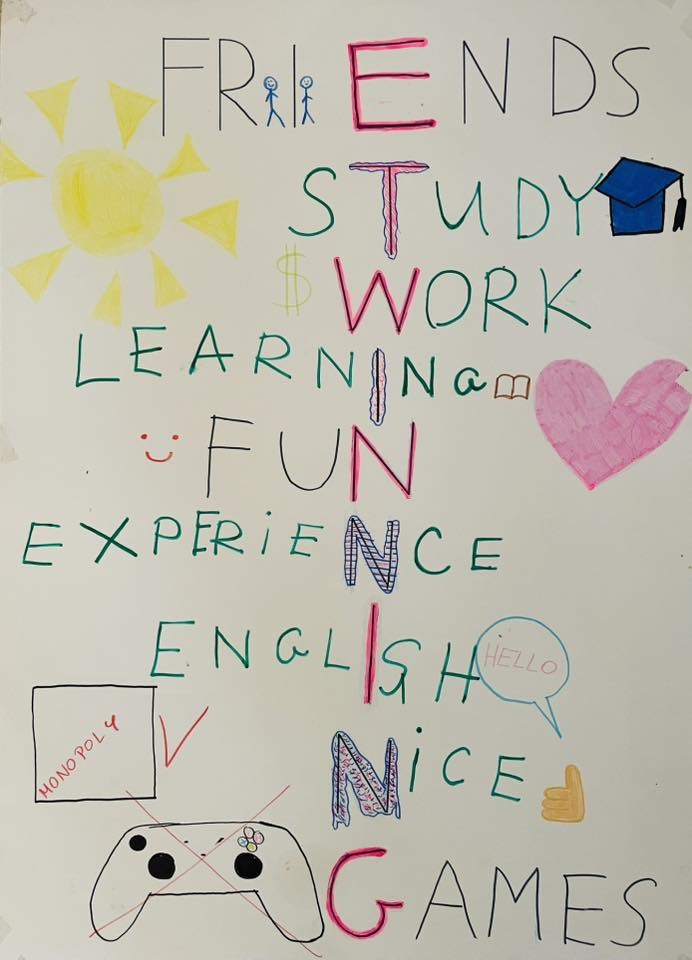 FRIENDS
STUDY
$ WORK
LEARNING
FUN
EXPERIENCE
ENGLISH
HELLO
MONOPOLY
NICE
GAMES